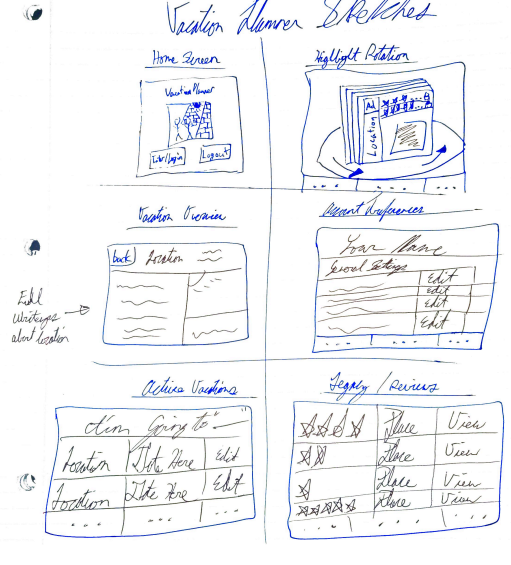 Vacation Planner Sketches
Home Screen
Vacation Planner
Login
Logout
Highlight Rotation
Ad
Location
...
...
...
Vacation Overview
back
Location
Full
about location
Account Preferences
Your Name
General Settings
Edit
Edit
Edit
Edit
...
...
...
Active Vacations
"I'm Going to" —
Location Date Here Edit
Location Date Here Edit
...
...
...
Legacy / Reviews
Place View
Place View
Place View
Place View
...
...
...